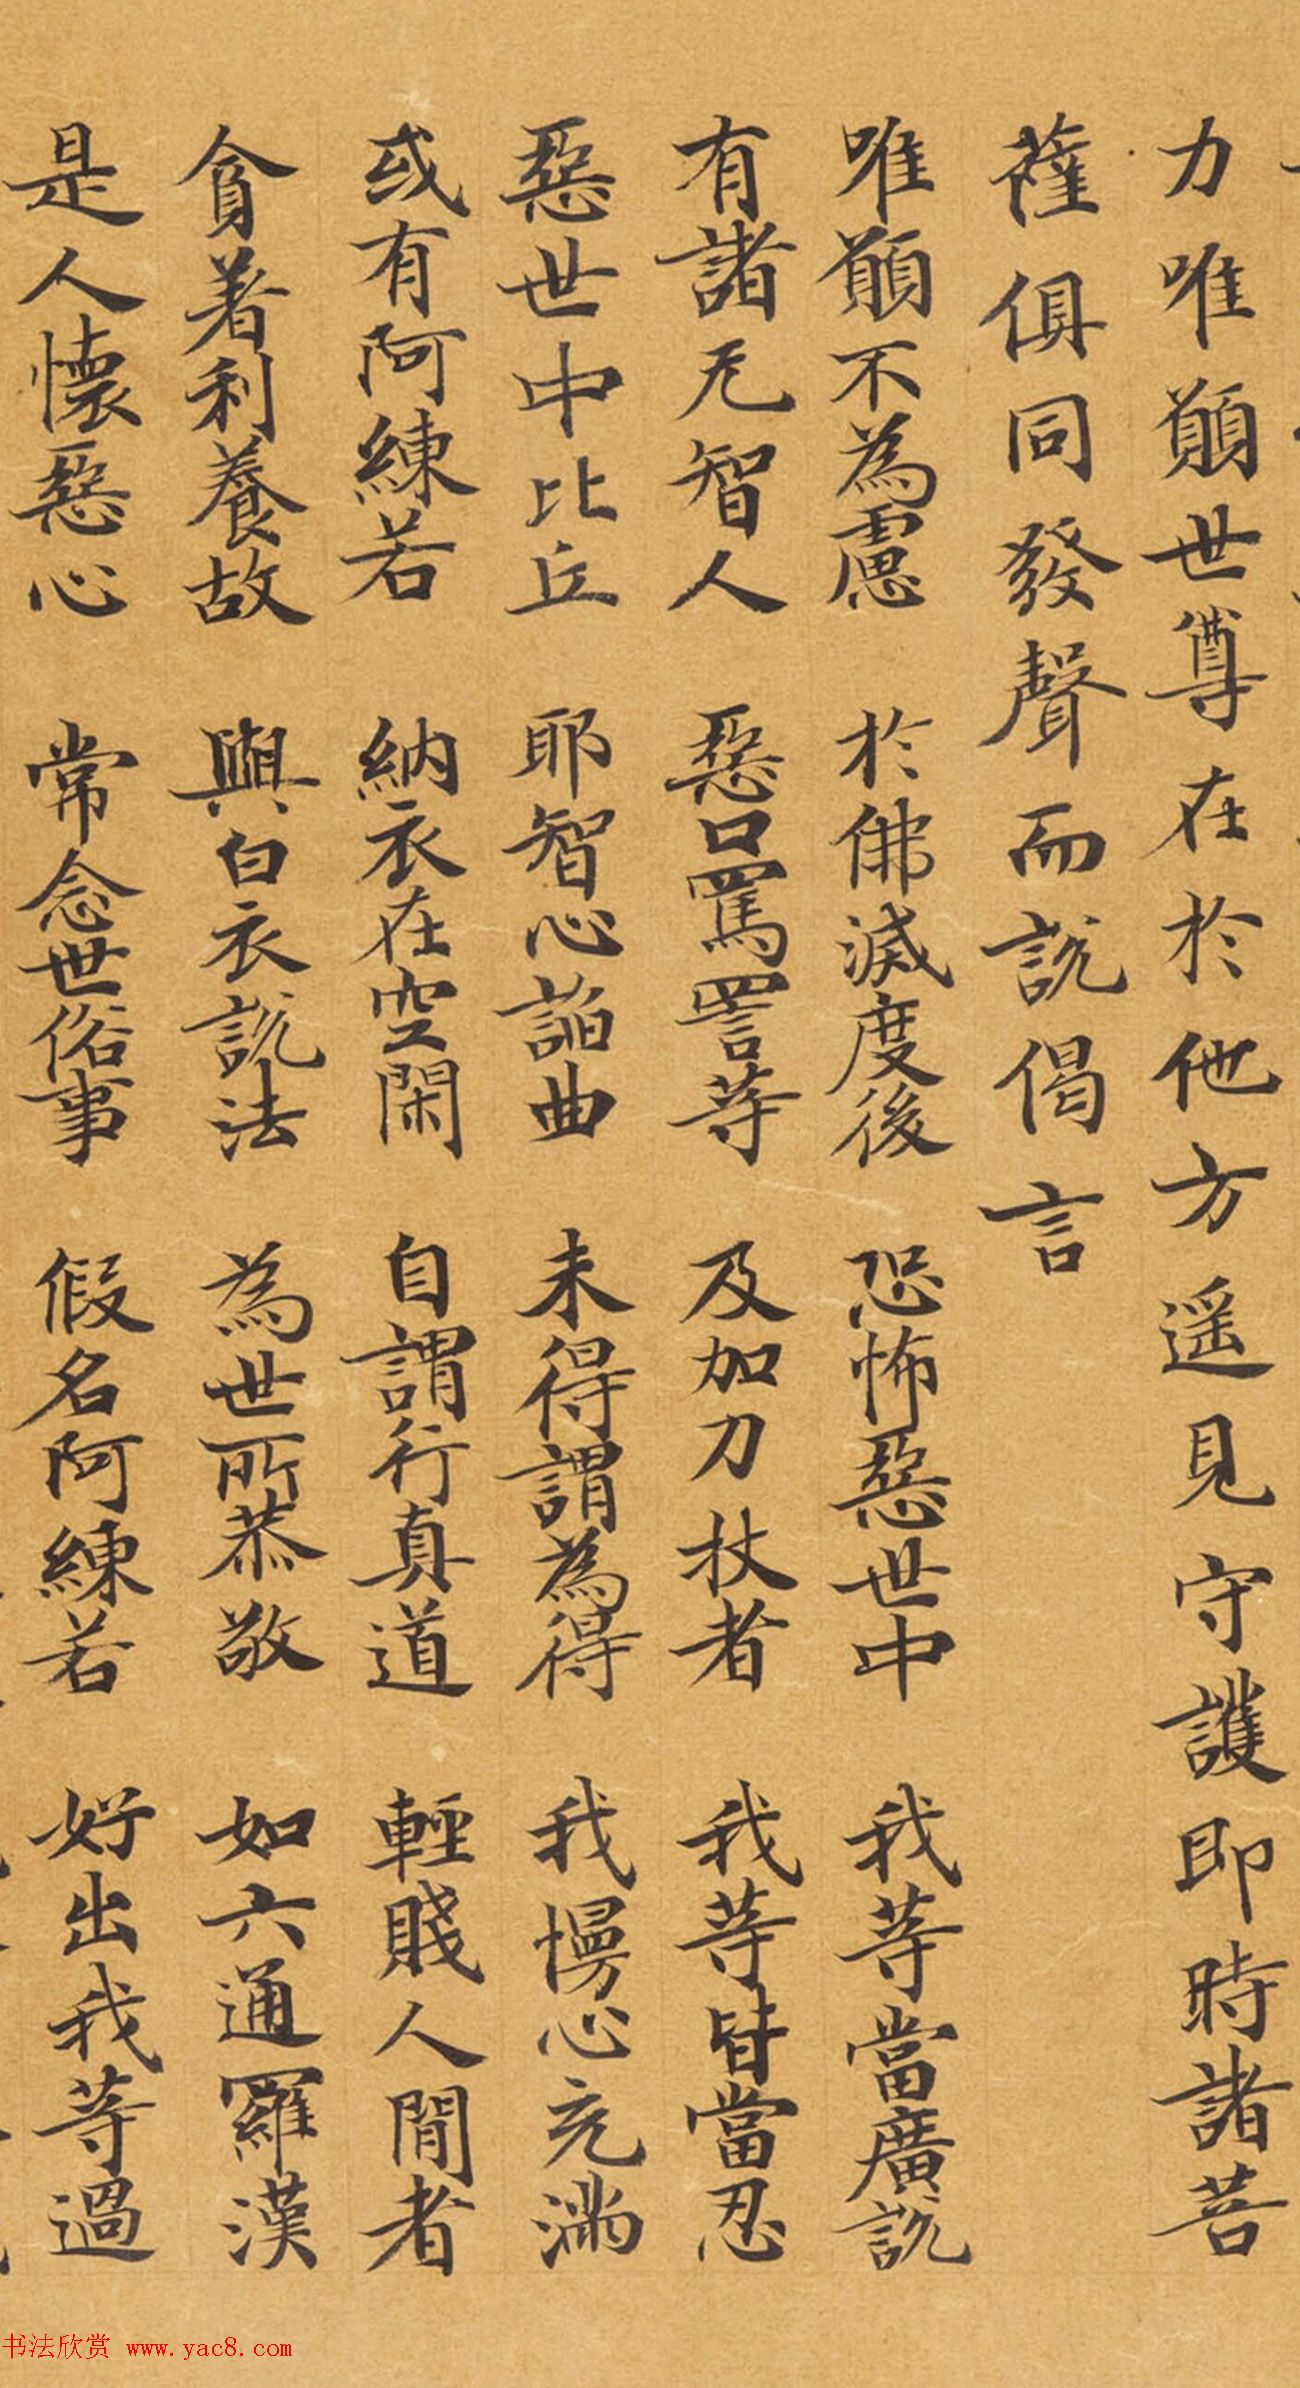 力唯願世尊在於他方遥見守護即時諸菩
薩俱同發聲而說偈言
唯願不為慮 於佛滅度後 恐怖惡世中 我等當廣說
有諸无智人 惡口罵詈等 及加刀杖者 我等皆當忍
惡世中比丘 耶智心諂曲 未得謂為得 我慢心充滿
或有阿練若 納衣在空閑 自謂行真道 輕賤人閒者
貪著利養故 與白衣說法 為世所恭敬 如六通羅漢
是人懷惡心 常念世俗事 假名阿練若 好出我等過
书法欣赏 www.yac8.com